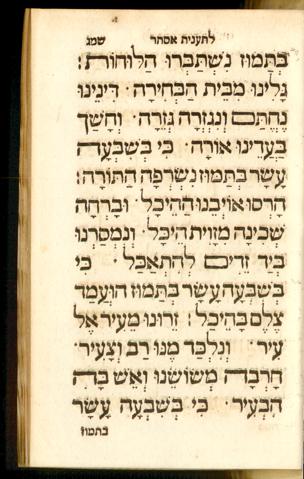 לתענית אסתר שמג
בְּתַמּוּז נִשְׁתַּבְּרוּ הַלּוּחוֹת:
גָּלִינוּ מִבֵּית הַבְּחִירָה · דִּינֵינוּ
נֶחְתַּם וְנִגְזְרָה גְּזֵרָה · וְחָשַׁךְ
בַּעֲדֵינוּ אוֹרָה · כִּי בְּשִׁבְעָה
עָשָׂר בְּתַמּוּז נִשְׂרְפָה הַתּוֹרָה:
הָרְסוּ אוֹיְבֵנוּ הַהֵיכָל · וּבָרְחָה
שְׁכִינָה מִזָּוִית הֵיכָל · וְנִמְסַרְנוּ
בְּיַד זֵדִים לְהִתְאַכֵּל · כִּי
בְּשִׁבְעָה עָשָׂר בְּתַמּוּז הוּעֲמַד
צֶלֶם בַּהֵיכָל: זֵרוּנוּ מֵעִיר אֶל
עִיר · וְנִלְכַּד מֶנּוּ רַב וְצָעִיר ·
חָרְבָה מְשׂוֹשֵׂנוּ וְאֵשׁ בָּהּ
הִבְעִיר · כִּי בְּשִׁבְעָה עָשָׂר
בתמוז